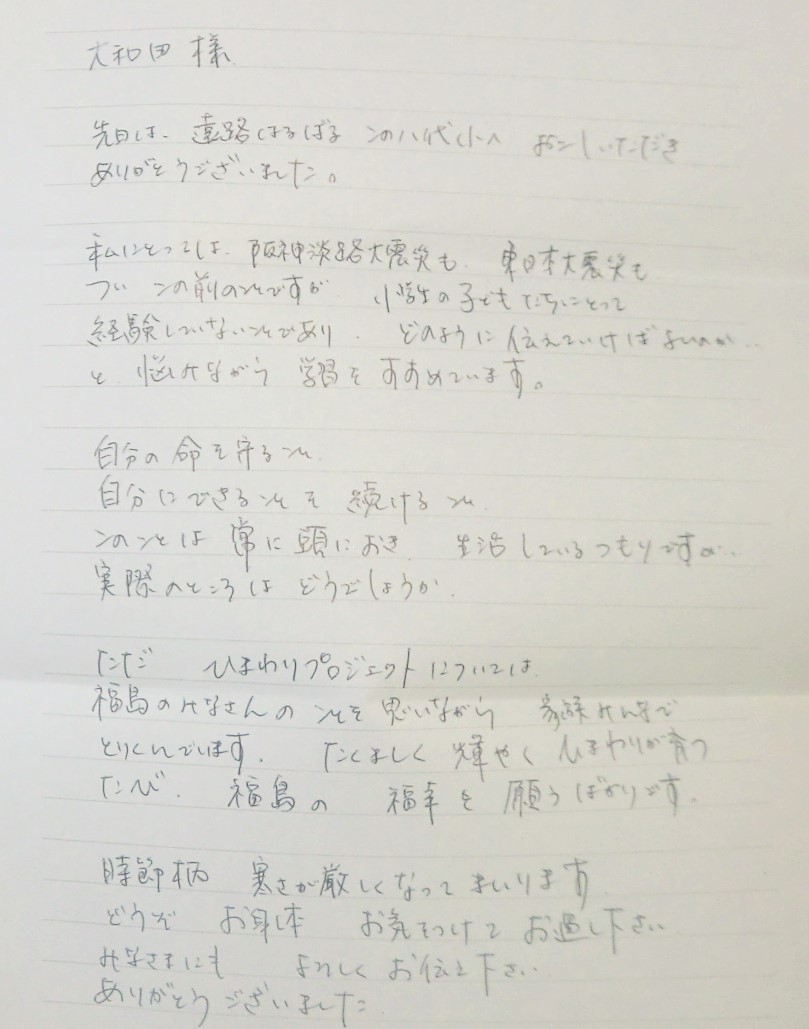 大和田 様
先日は、遠路はるばる この八代小へ お越しいただき
ありがとうございました。
私にとっては、阪神淡路大震災も、東日本大震災も
つい この前のことですが 小学生の子どもたちにとって
経験していないことであり、 どのように伝えていけばよいのか…
と 悩みながら 学習を すすめています。
自分の命を守ること、
自分にできることを 続けること、
このことは 常に頭におき、 生活しているつもりですが…
実際のところは どうでしょうか。
ただ ひまわりプロジェクトについては、
福島のみなさんの ことを 思いながら 家族みんなで
とりくんでいます。 たくましく 輝やく ひまわりが育つ
たび、 福島の 福幸を 願うばかりです。
時節柄 寒さが厳しくなって まいります
どうぞ お身体 お気をつけて お過し下さい
みなさまにも よろしく お伝え下さい
ありがとう ございました